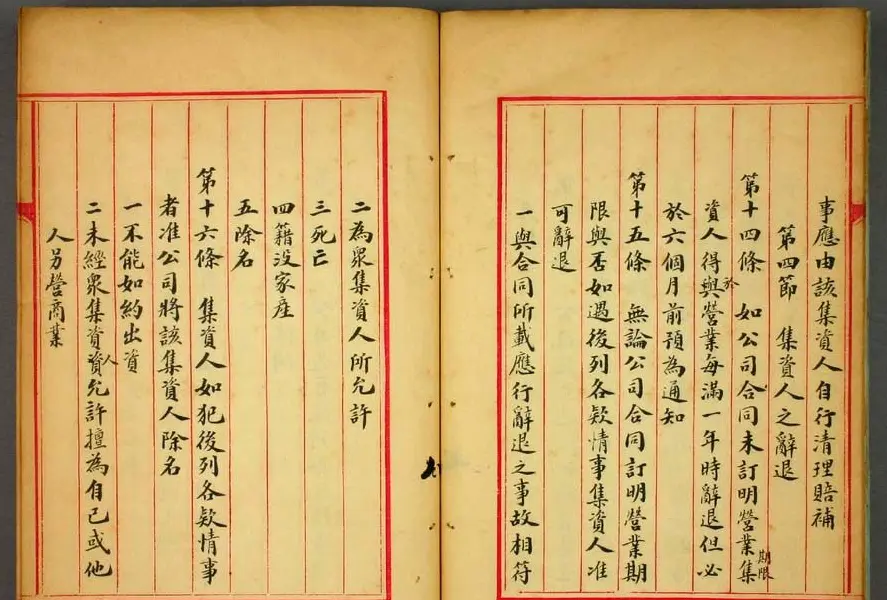 事應由該集資人自行清理賠補
第四節 集資人之辭退
第十四條 如公司合同未訂明營業期限集
資人得於與營業每滿一年時辭退但必
於六個月前預為通知
第十五條 無論公司合同訂明營業期
限與否如遇後列各欵情事集資人准
可辭退
一與合同所載應行辭退之事故相符
二為衆集資人所允許
三死亡
四籍没家産
五除名
第十六條 集資人如犯後列各欵情事
者准公司將該集資人除名
一不能如約出資
二未經衆集資資人允許擅為自己或他
人另營商業